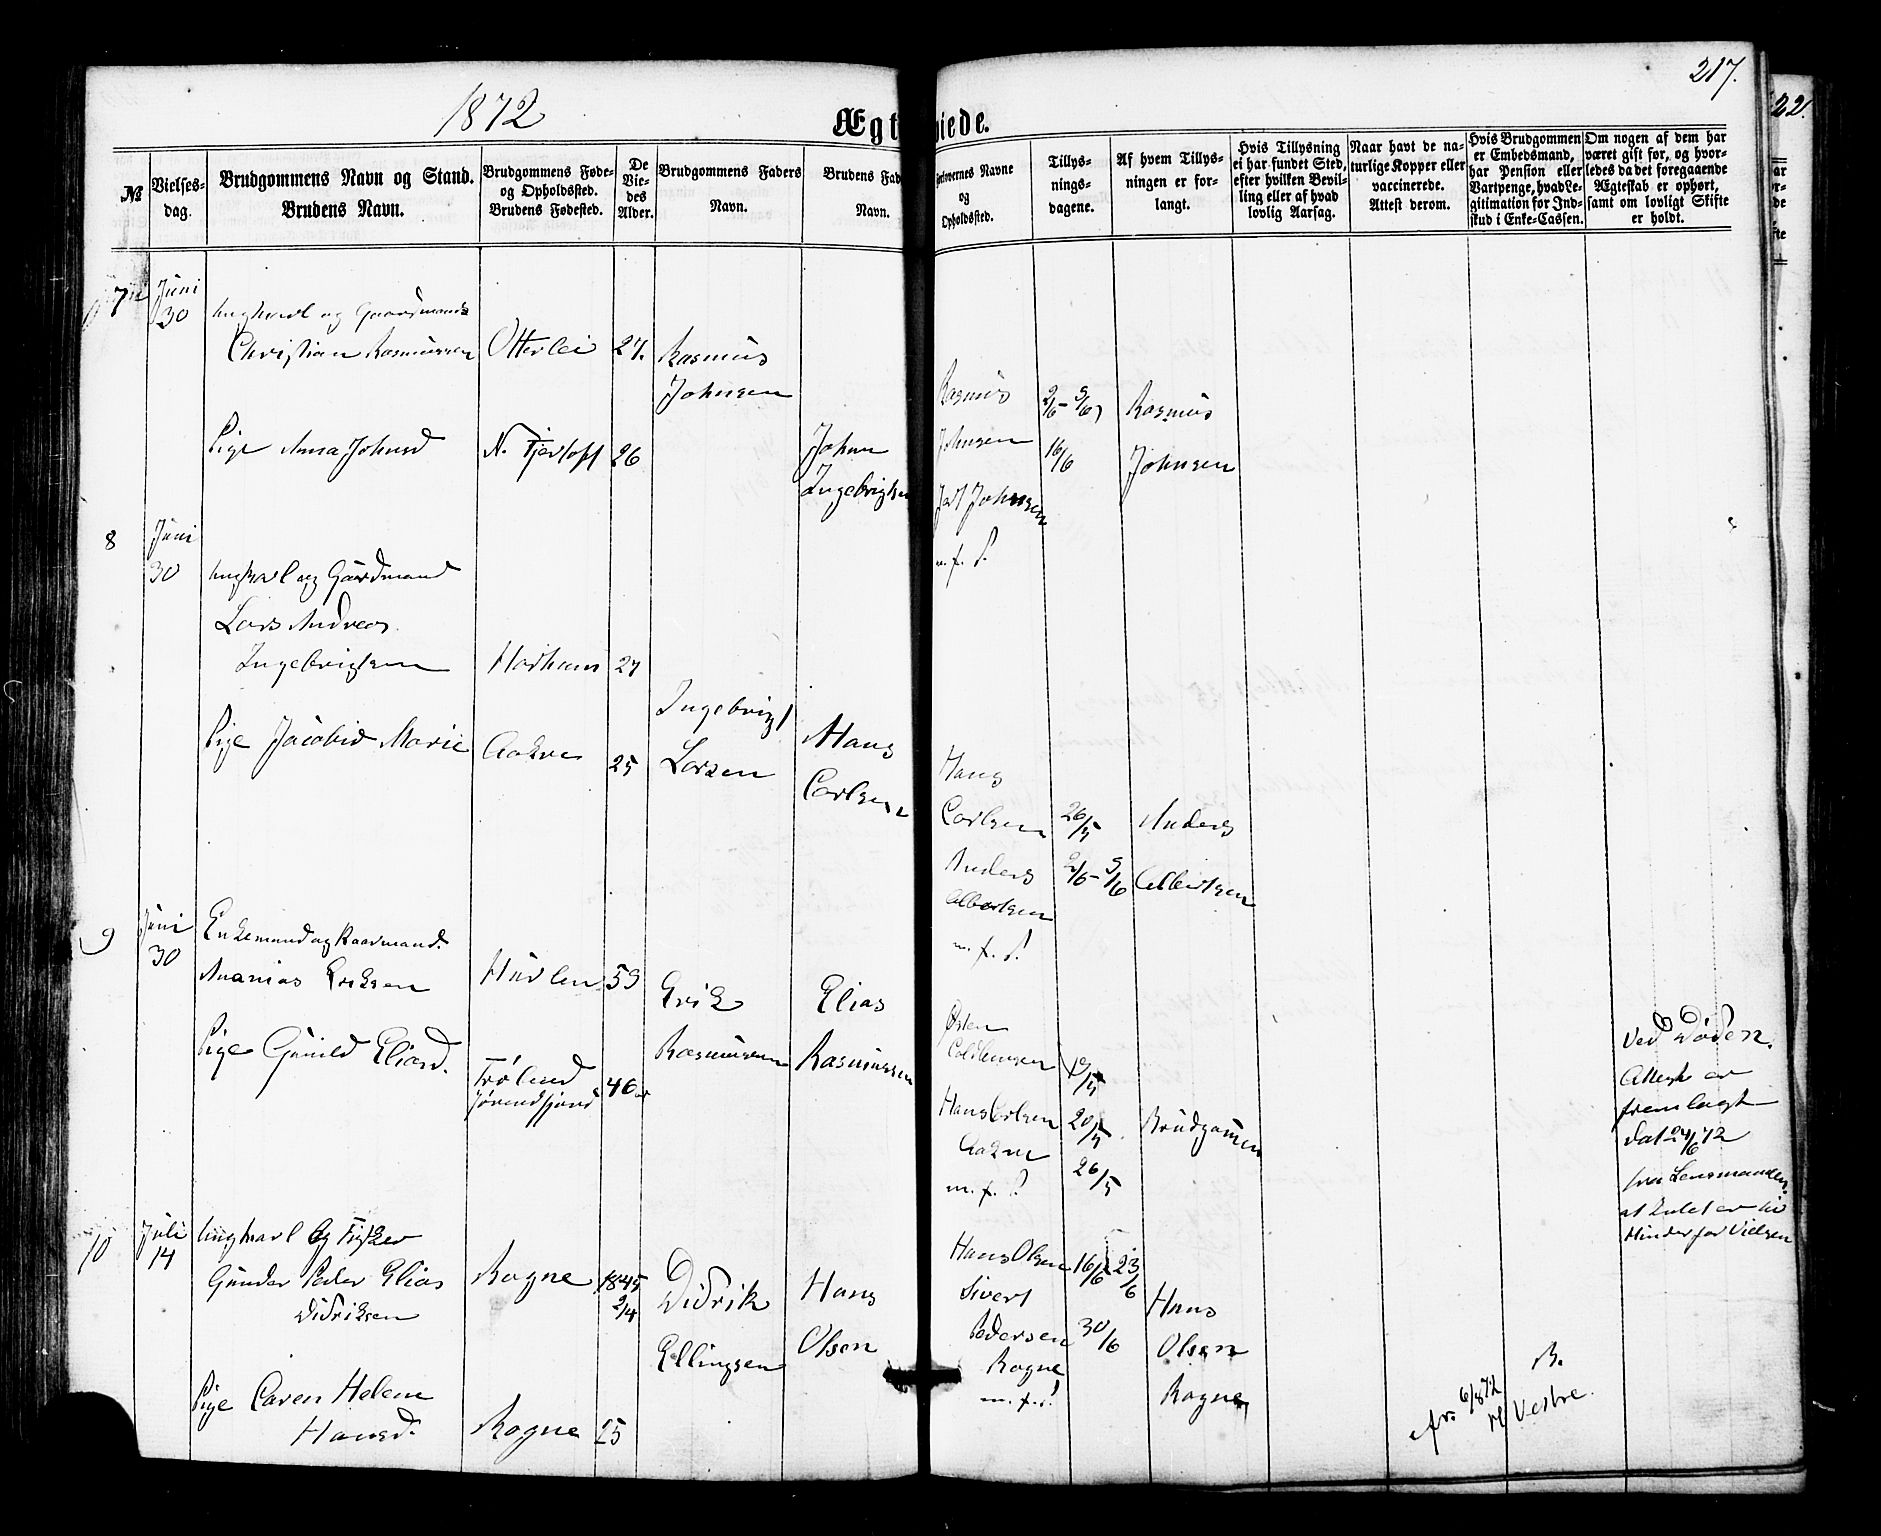 1872
217.
22.
Ægt
viede.
№
Vielses-
dag.
Brudgommens Navn og Stand.
Brudens Navn.
Brudgommens Føde-
og Opholdssted.
Brudens Fødested.
De
Vie-
des
Alder.
Brudgommens Faders
Navn.
Brudens Fad
Navn.
Forlovernes Navne
og
Opholdssted.
Tillys-
nings-
dagene.
Af hvem Tillys-
ningen er for-
langt.
Hvis Tillysning
ei har fundet Sted,
efter hvilken Bevil-
ling eller af hvad
lovlig Aarsag.
Naar havt de na-
turlige Kopper eller
vaccinerede.
Attest derom.
Hvis Brudgommen
er Embedsmand,
har Pension eller
Vartpenge, hvad Le-
gitimation for Ind-
skud i Enke-Cassen.
Om nogen af dem har
været gift før, og hvor-
ledes da det foregaaende
Ægteskab er ophørt,
samt om lovligt Skifte
er holdt.
7
Juni
30
Ungkarl og Gaardmand
Christian Rasmussen
Otterlei
27.
Rasmus
Johnsen
Pige Anna Johnsd
N. Fjertoft
26
John
Ingebrigtsen
Rasmus
Johnsen
Johnsen
m. f. P.
2/6 - 9/6
16/6
Rasmus
Johnsen
8
Juni
30
Ungkarl og Gardmand
Lars Andreas
Ingebrigtsen
Harham
27
Ingebrigt
Larsen
Pige Jacobid Marie
Aakre
25
Hans
Carlsen
Hans
Carlsen
Anders
Albertsen
m. f. P.
26/5
2/6 - 9/6
Anders
Albertsen
9
Juni
30
Enkemand og Kaarmand
Ananias Eriksen
Hurlen
59
Erik
Rasmussen
Pige Gunild Eliasd.
46
Elias
Rasmussen
Østen
Hans Carlsen
m. f. P.
19/5
20/5
26/5
Brudgommen
Ved Døden.
Attest er
fremlagt
dat 24/6 72
fra Lensmanden,
at Intet er til
Hinder for Vielsen
10
Juli
14
Ungkarl og Fisker
Gunder Peder Elias
Didriksen
Rogne
1845
2/4
Didrik
Ellingsen
Pige Caren Helene
Hansd.
Rogne
25
Hans
Olsen
Hans Olsen
Sivert
Pedersen
Rogne
m. f. P.
16/6 23/6
30/6
Hans
Olsen
Rogne
6/8 72
Vestre.